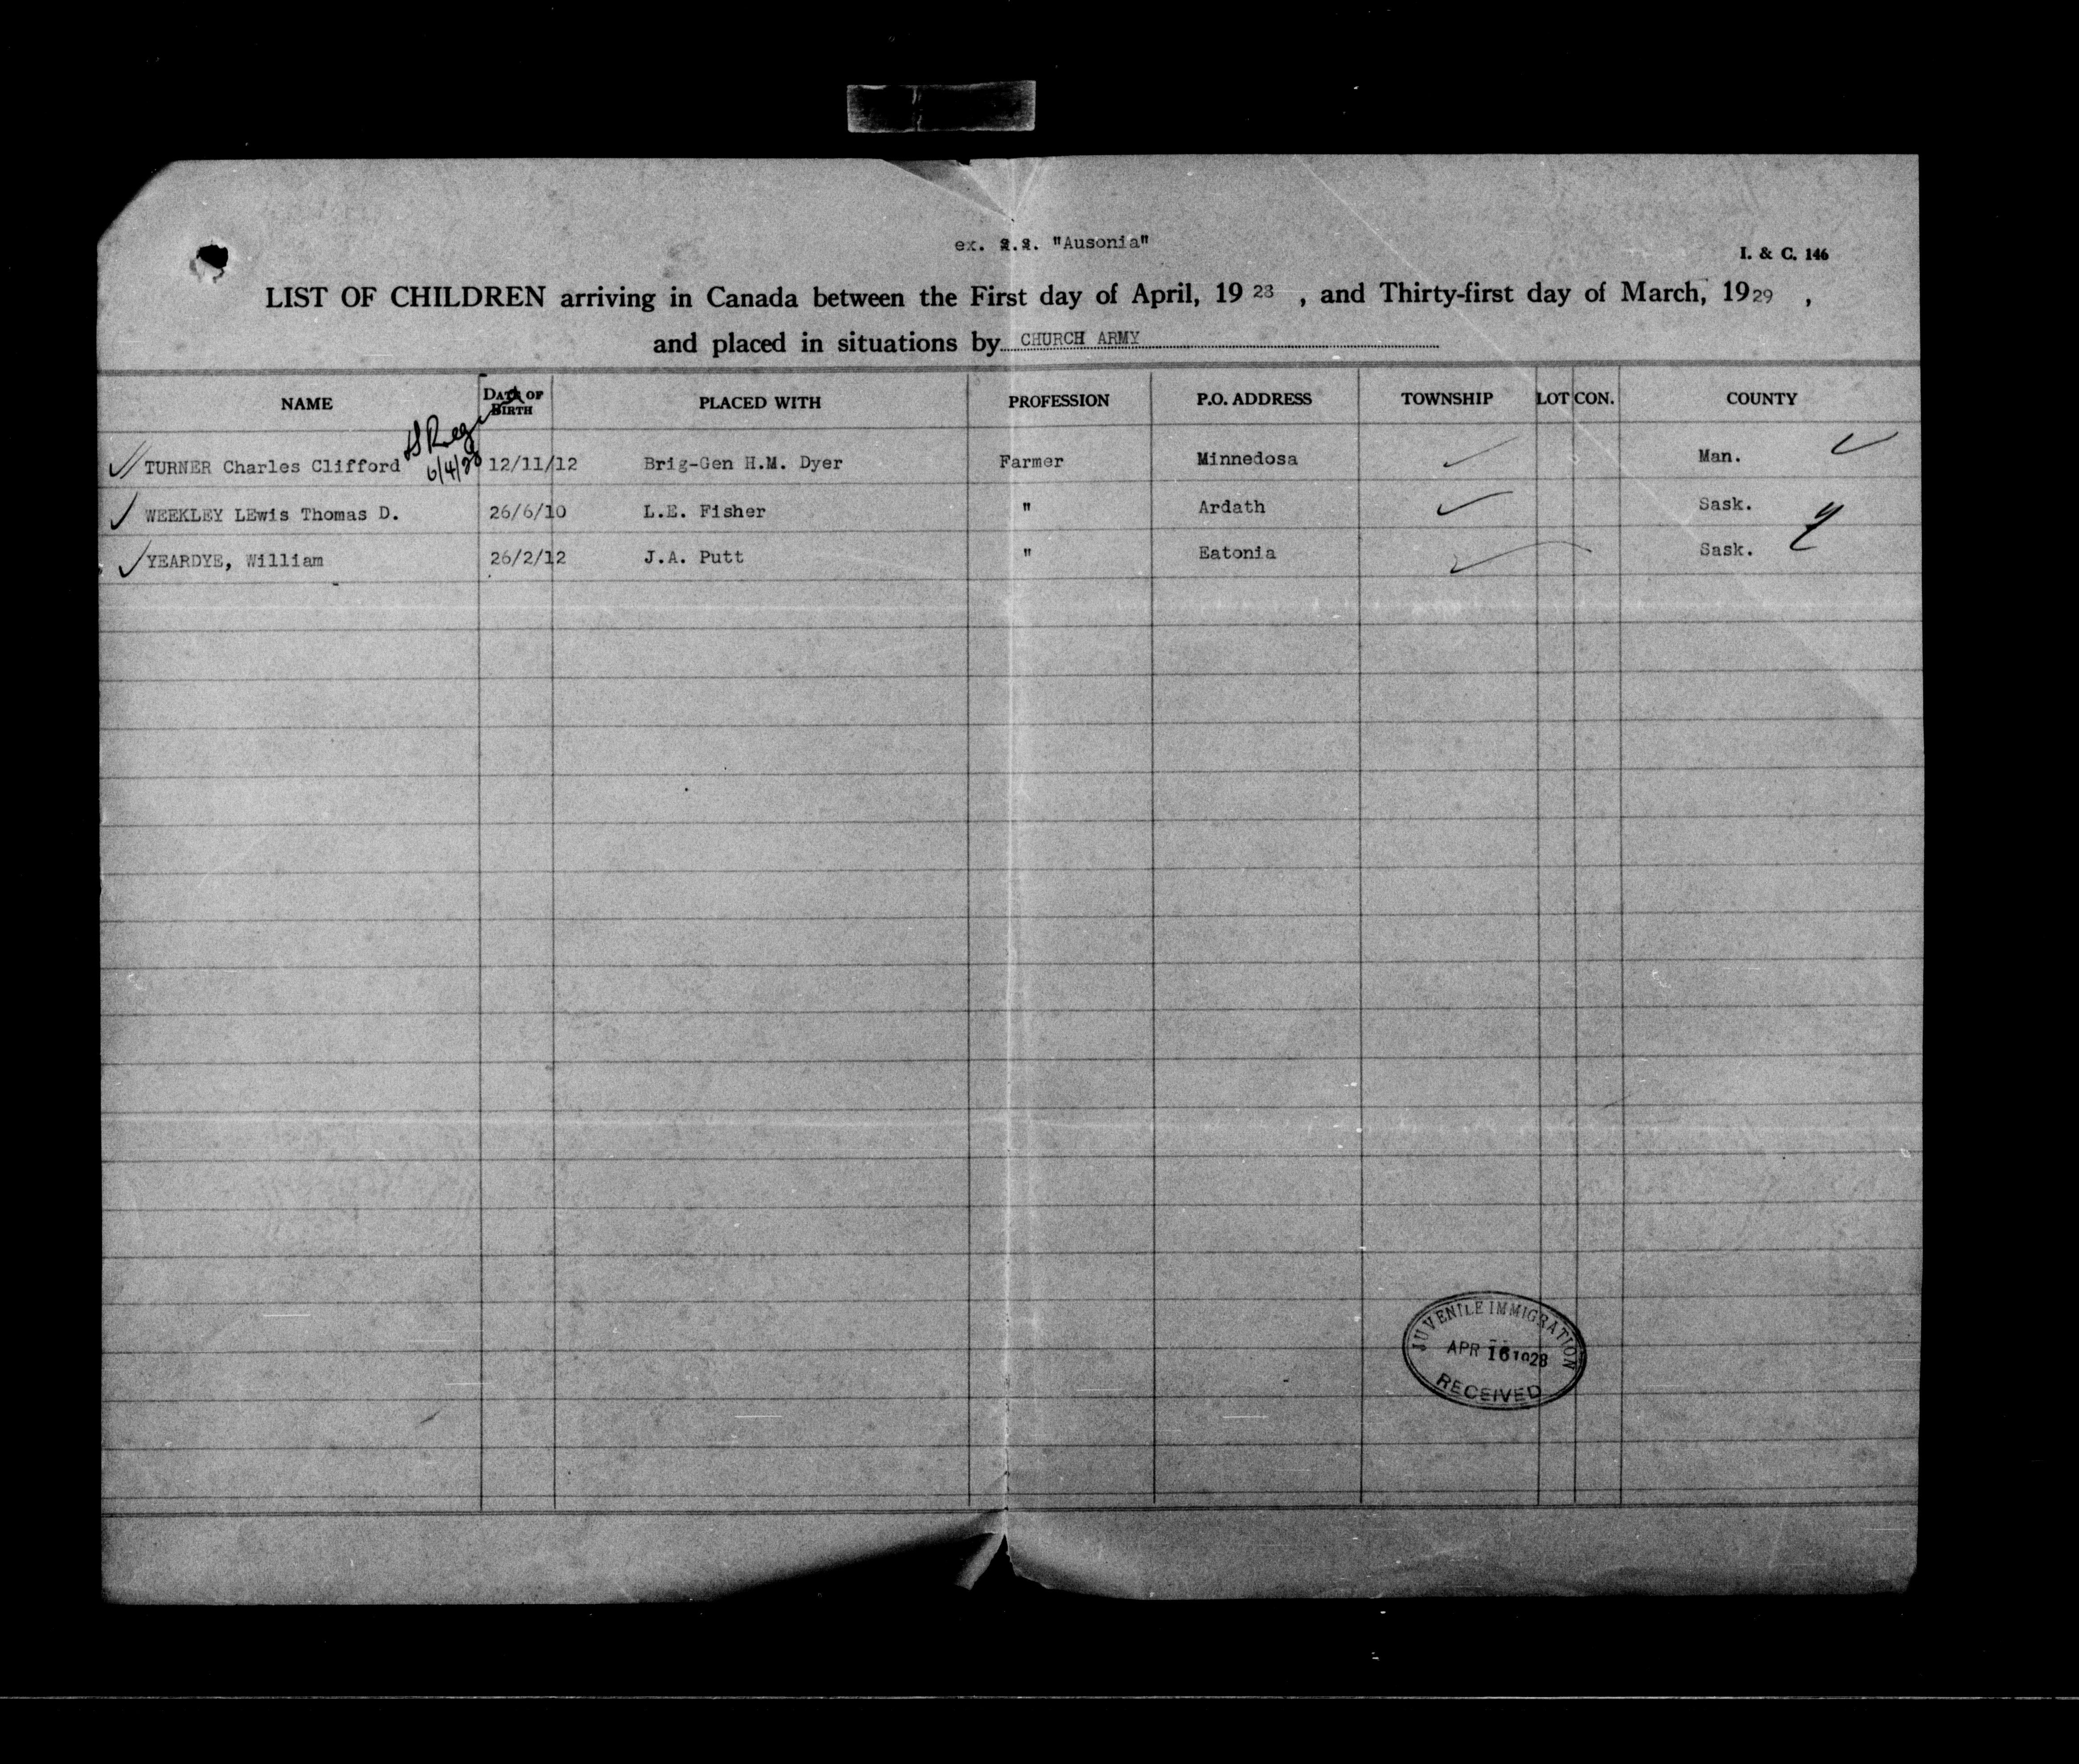 ex. s.s. "Ausonia"
I. & C. 146
LIST OF CHILDREN arriving in Canada between the First day of April, 19 28 , and Thirty-first day of March, 1929 ,
and placed in situations by CHURCH ARMY
NAME DATE OF BIRTH PLACED WITH PROFESSION P.O. ADDRESS TOWNSHIP LOT CON. COUNTY
6/4/28
TURNER Charles Clifford 12/11/12 Brig-Gen H.M. Dyer Farmer Minnedosa Man.
WEEKLEY LEwis Thomas D. 26/6/10 L.E. Fisher " Ardath Sask.
YEARDYE, William 26/2/12 J.A. Putt " Eatonia Sask.
JUVENILE IMMIGRATION
APR 16 1928
RECEIVED